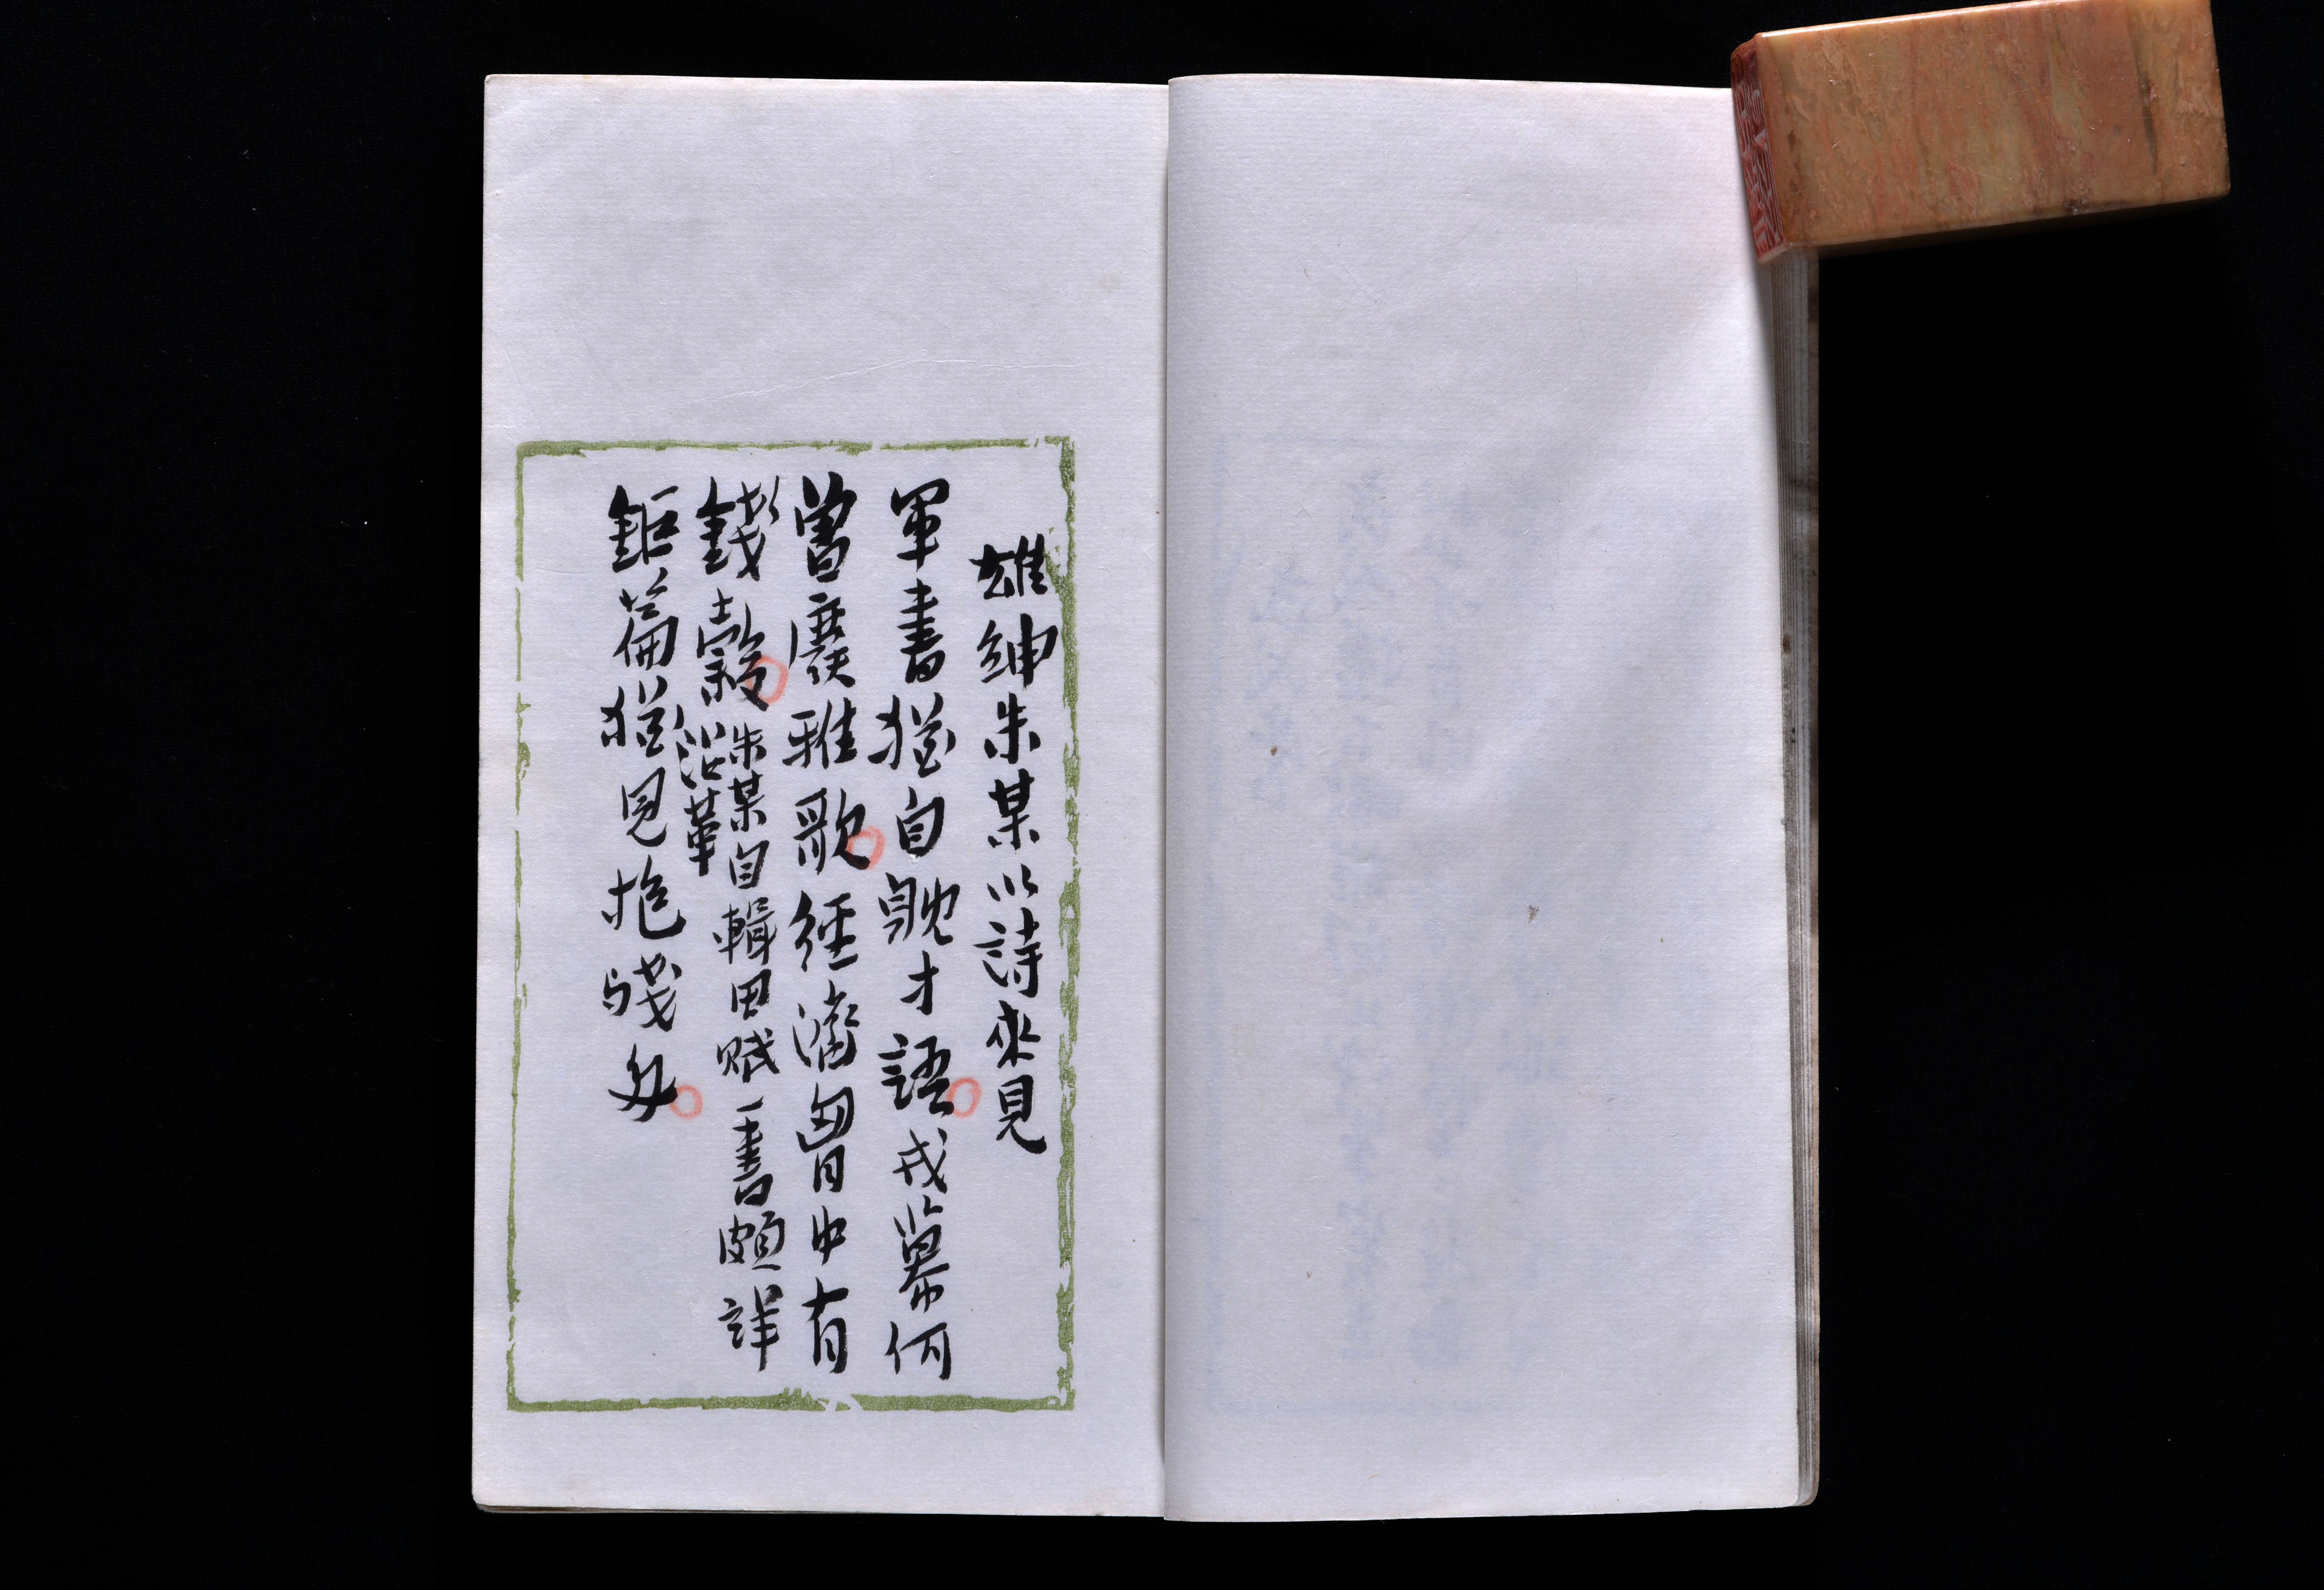 雄紳朱某以詩來見
軍書猶自躭才語戎幕何
曾廢雅歌經濟胷中有
錢穀朱某自輯田賦一書頗詳
沿革
鉅篇猶見抱殘